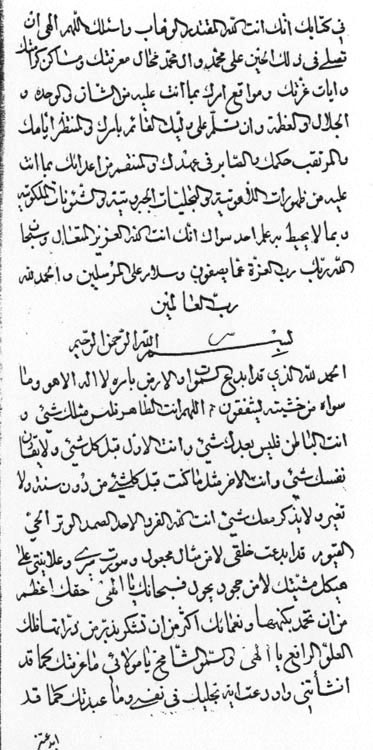 في كتابك انك انت الله المقتدر الوهاب واسئلك اللهم الهي ان
تصلي في ذلك الحين على محمد وآل محمد محال معرفتك ومساكن كرامتك
وايات عزتك ومواقع امرك بما انت عليه من الشان والوحدة و
الجلال والعظمة وان تسلم على وليك القائم بامرك والمنتظر ايامك
والمرتقب حكمك والصابر في عهدك والمنتقم من اعدائك بما انت
عليه من ظهورات اللاهوتية والتجليات الجبروتية والشئونات الملكوتية
وبما لا يحيط به علم احد سواك انك انت الله العزيز المتعال وسبحان
الله ربك رب العزة عما يصفون وسلام على المرسلين والحمد لله
رب العالمين
بسم الله الرحمن الرحيم
الحمد لله الذي قد ابدع السموات والارض بامره لا اله الا هو وما
سواه من خشيته ليشفقون اللهم انت الظاهر فليس مثلك شئ و
انت الباطن فليس بعدك شئ وانت الاول قبل كل شئ ولا يقارن
نفسك شئ وانت الاخر مثل ما كنت قبل كل شئ من دون سنة ولا
تغير ولا يذكر معك شئ انت الله الفرد الاحد الصمد الوتر الحي
القيوم قد ابدعت خلقي لا من مثال مجعول وصورت سري وعلانيتي على
هيكل مشيتك لا من وجود فسبحانك يا الهي حقك اعظم
من ان تحمد بكنهها ونعمائك اكثر من ان تستكر بذكر من
العلو الرافع يا الهي والسمو الشامخ يا مولائي ما عرفتك كما قد
انشأتني واودعت اية تجليك في نفسي وما عبدتك كما قد